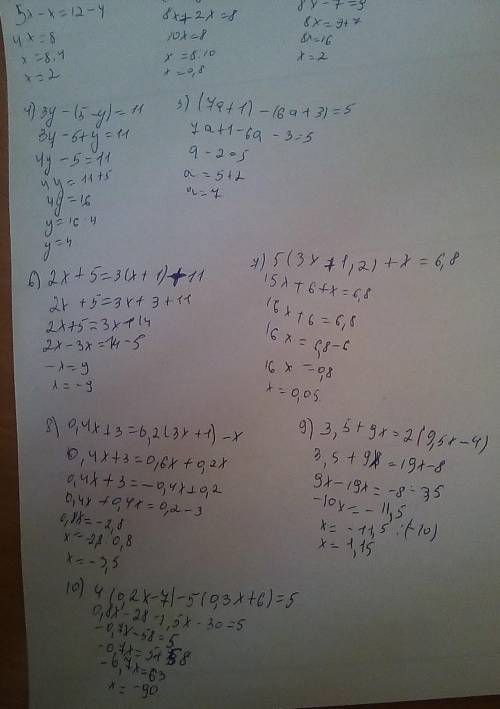 5x-x=12-4
4x=8
x=8:4
x=2
8x+2x=8
10x=8
x=8:10
x=0,8
8x-7=9
8x=9+7
8x=16
x=2
4) 3y-(5-y)=11
3y-5+y=11
4y-5=11
4y=11+5
4y=16
y=16:4
y=4
5) (7a+1)-(6a+3)=5
7a+1-6a-3=5
a-2=5
a=5+2
a=7
6) 2x+5=3(x+1)+11
2x+5=3x+3+11
2x+5=3x+14
2x-3x=14-5
-x=9
x=-9
7) 5(3x+1,2)+x=6,8
15x+6+x=6,8
16x+6=6,8
16x=6,8-6
16x=0,8
x=0,05
8) 0,4x+3=0,2(3x+1)-x
0,4x+3=0,6x+0,2x
0,4x+3=-0,4x+0,2
0,4x+0,4x=0,2-3
0,8x=-2,8
x=-2,8:0,8
x=-3,5
9) 3,5+9x=2(9,5x-4)
3,5+9x=19x-8
9x-19x=-8-3,5
-10x=-11,5
x=-11,5:(-10)
x=1,15
10) 4(0,2x-7)-5(0,3x+6)=5
0,8x-28-1,5x-30=5
-0,7x-58=5
-0,7x=5+58
-0,7x=63
x=-90